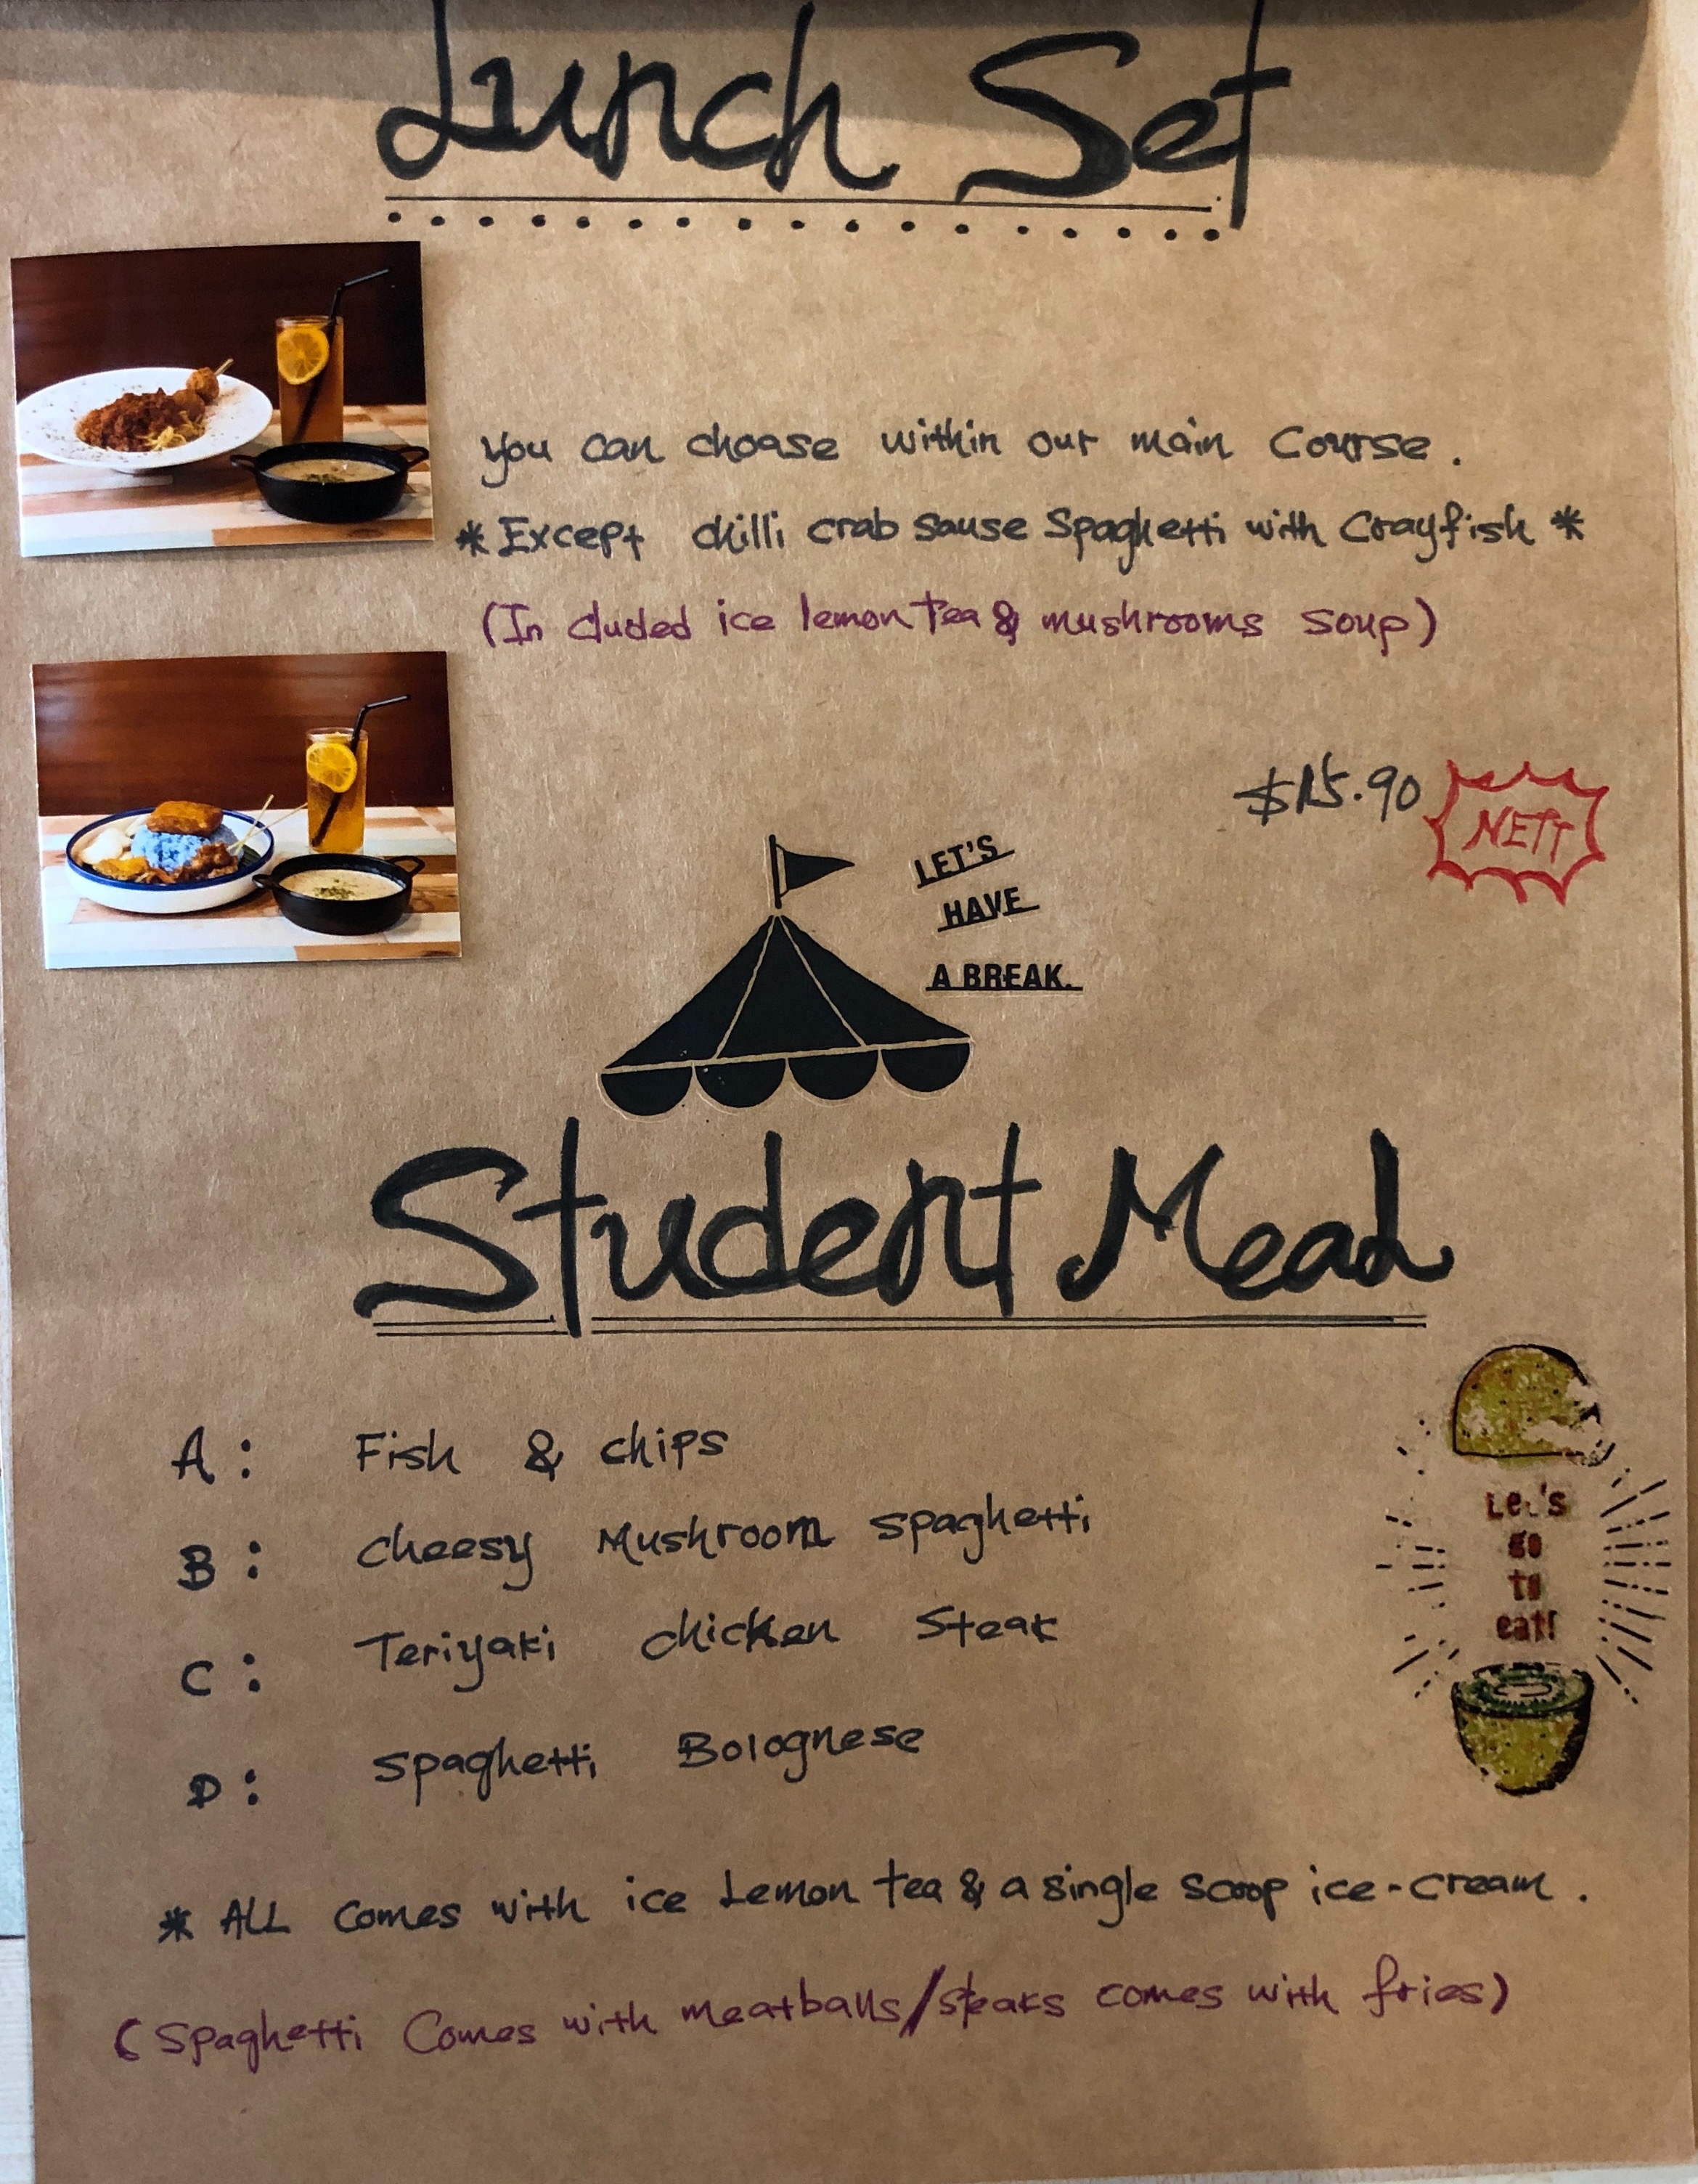 Lunch Set
You can choose within our main Course.
* Except chilli crab sause Spaghetti with Crayfish *
(In cluded ice lemon tea & mushrooms soup)
$15.90 NETT
LET'S
HAVE
A BREAK.
Student Meal
A: Fish & chips
B: Cheesy Mushroom spaghetti
C: Teriyaki chicken Steak
D: Spaghetti Bolognese
Let's
go
to
eat!
* ALL comes with ice Lemon tea & a single scoop ice-cream.
(Spaghetti Comes with meatballs/steaks comes with fries)